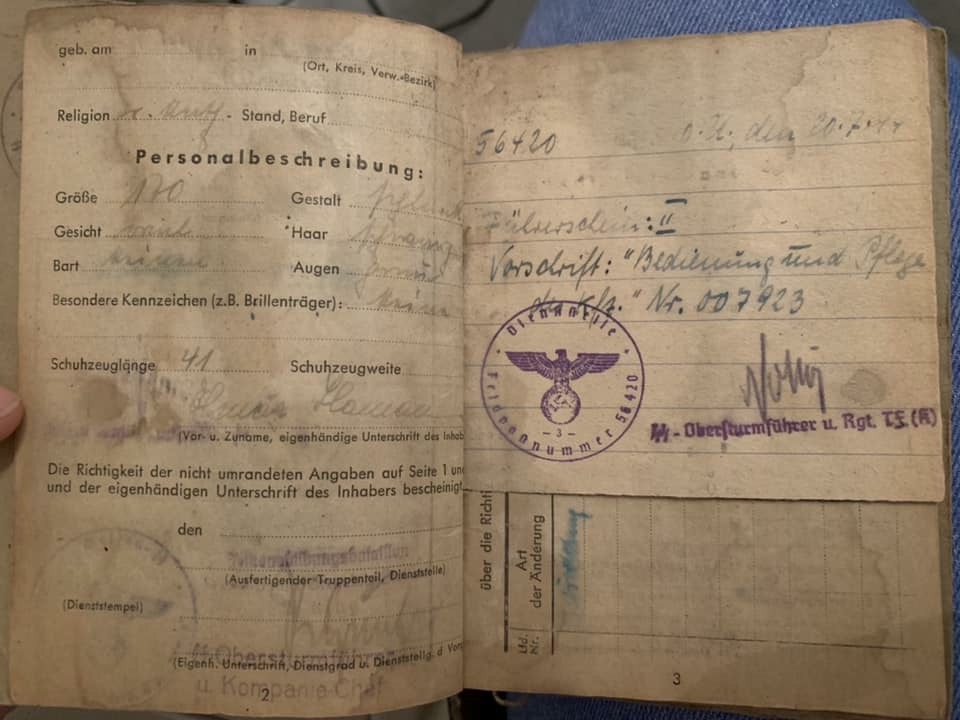 geb. am in
(Ort, Kreis, Verw.-Bezirk)
Religion - Stand, Beruf
Personalbeschreibung:
Größe 170 Gestalt schlank
Gesicht Haar schwarz
Bart keinen Augen
Besondere Kennzeichen (z.B. Brillenträger): keine
Schuhzeuglänge 41 Schuhzeugweite
(Vor- u. Zuname, eigenhändige Unterschrift des Inhab
Die Richtigkeit der nicht umrandeten Angaben auf Seite 1 un
und der eigenhändigen Unterschrift des Inhabers bescheinigt
den
(Ausfertigender Truppenteil, Dienststelle)
(Dienststempel)
ᛋᛋ-Obersturmführer
(Eigenh. Unterschrift, Dienstgrad u. Dienststellg. d Vors
u. Kompanie-Chef
2
56420 O.U., den 20.7.44
Führerschein: II
Vorschrift: "Bedienung und Pflege
des Kfz." Nr. 007923
Dienststelle
Feldpostnummer 56420
- 3 -
ᛋᛋ-Obersturmführer u. Rgt.
über die Richti
Art
der Änderung
Lfd.
Nr.
3